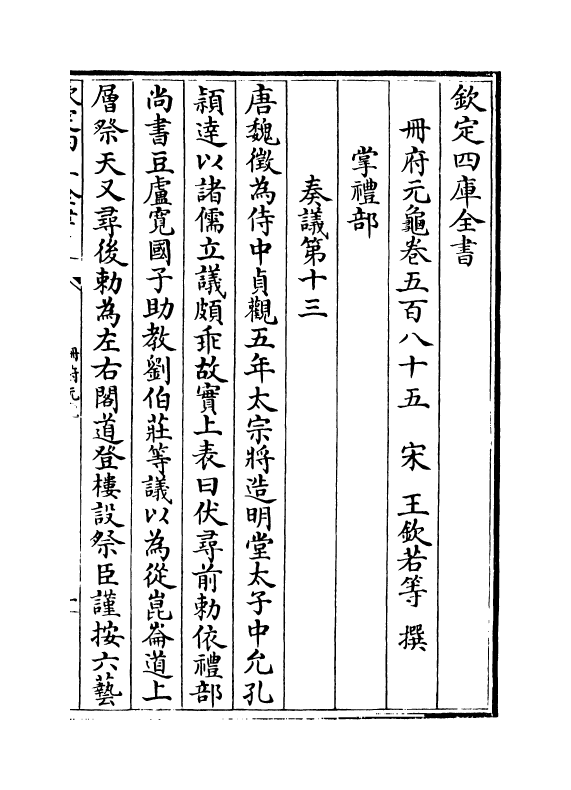 欽定四庫全書
冊府元龜卷五百八十五　宋　王欽若等　撰
掌禮部
奏議第十三
唐魏徵為侍中貞觀五年太宗將造明堂太子中允孔
穎達以諸儒立議頗乖故實上表曰伏尋前勅依禮部
尚書豆盧寬國子助教劉伯莊等議以為從崑崙道上
層祭天又尋後勅為左右閣道登樓設祭臣謹按六藝
冊府元